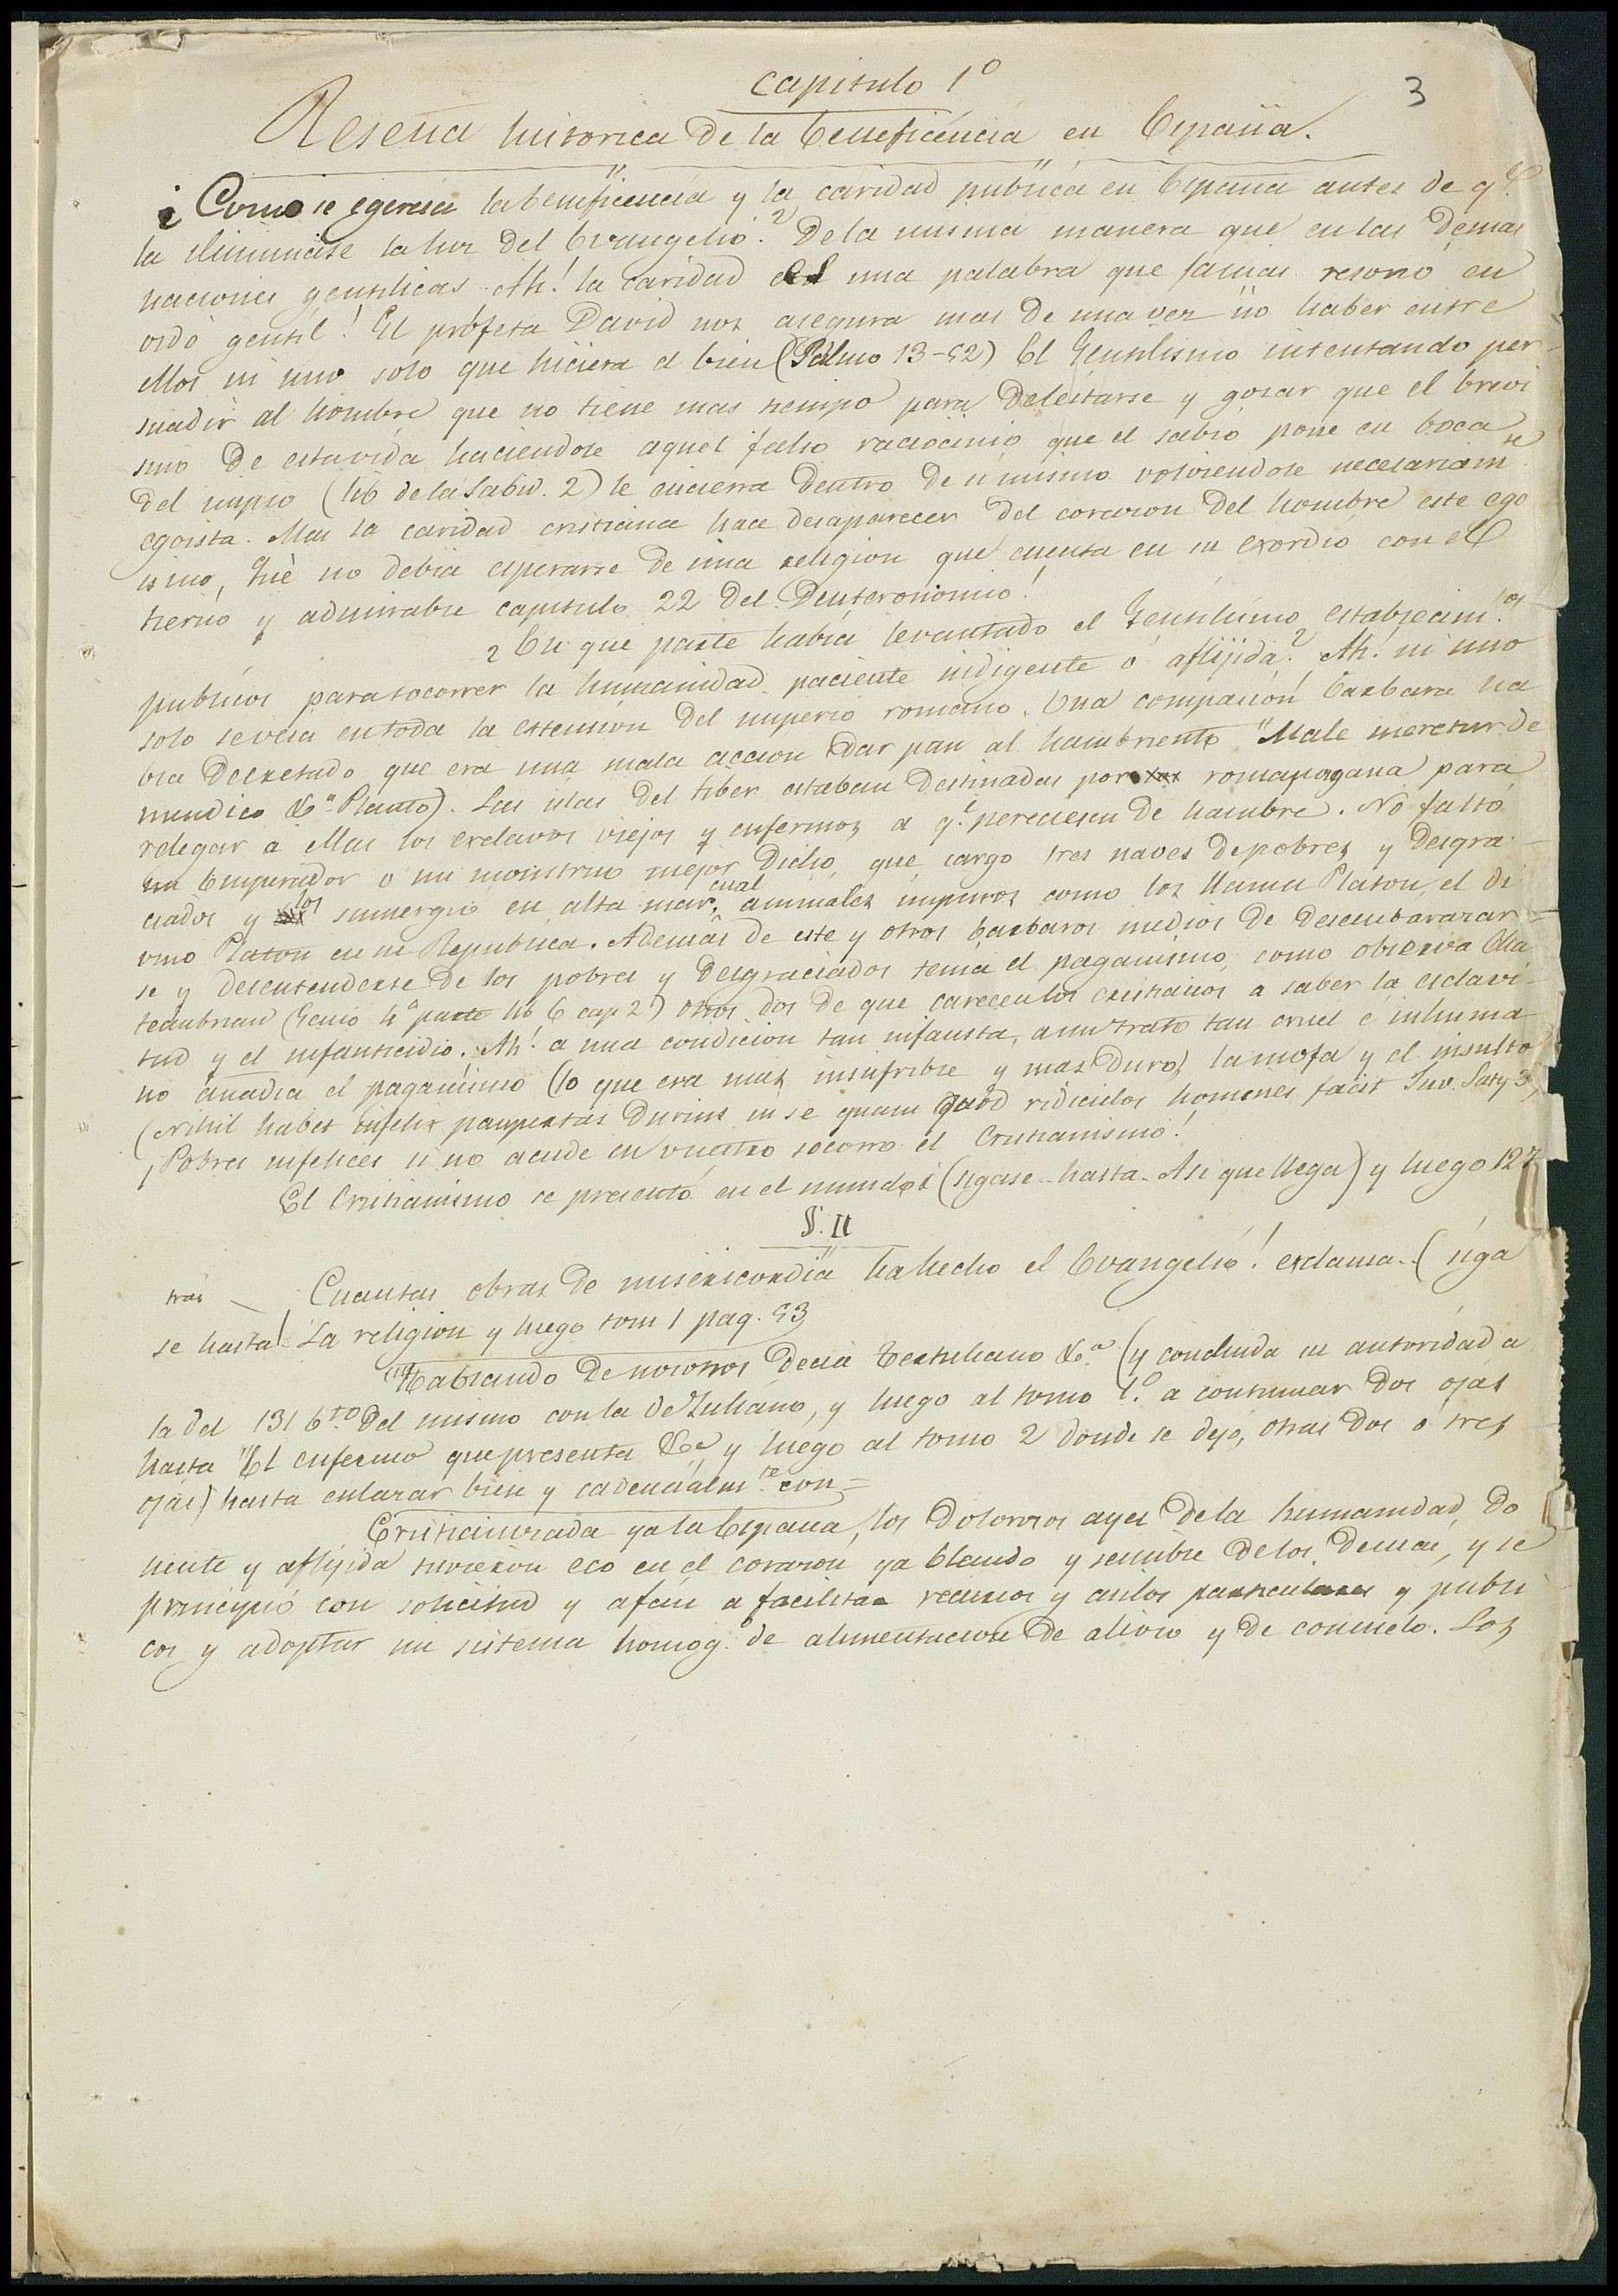 3
Capitulo 1º
Reseña historica de la beneficencia en España.
¿Como se egercia la beneficencia y la caridad publica en España antes de q.e
la iluminase la luz del Evangelio? De la misma manera que en las demas
naciones gentilicas. Ah! la caridad es una palabra que jamas resonó en
oido gentil! El profeta David nos asegura mas de una vez no haber entre
ellos ni uno solo que hiciera el bien (Salmo 13-52) El Gentilismo intentando per-
suadir al hombre que no tiene mas tiempo para delectarse y gozar que el brevi
simo de esta vida haciendole aquel falso raciocinio que el sabio pone en boca
del impio (lib de la Sabid. 2) le encierra dentro de si mismo volviendole necesariam.te
egoista. Mas la caridad cristiana hace desaparecer del corazon del hombre este ego
ismo, Qué no debia esperarse de una religion que cuenta en su exordio con el
tierno y admirable capitulo 22 del Deuteronomio!
¿En que parte habia levantado el Gentilismo establecim.tos
publicos para socorrer la humanidad paciente indigente ó aflijida? Ah! ni uno
solo se veia en toda la estension del imperio romano. Una compasion barbara ha
bia decretado que era una mala accion dar pan al hambriento "Male meretur de
mendico &.a Plauto). Las islas del tiber estaban destinadas por roma pagana para
relegar a ellas los esclavos viejos y enfermos a q.e pereciesen de hambre. No faltó
un Emperador o un monstruo mejor dicho, que cargo tres naves de pobres y desgra-
ciados y los sumergio en alta mar, cual animales impuros como los llama Platon, el di
vino Platon en su Republica. Además de este y otros barbaros medios de desembarazar-
se y desentenderse de los pobres y desgraciados tenia el paganismo, como observa Cha
teaubriand (Genio 4ª parte lib 6 cap 2) otros dos de que carecen los cristianos a saber la esclavi-
tud y el infanticidio. Ah! a una condicion tan infausta, a un trato tan cruel é inhuma
no añadia el paganismo (lo que era mas insufrible y mas duro) la mofa y el insulto
(Nihil habet infelix paupertas durius in se quam quod ridiculos homines facit Juv. Saty 3)
¡Pobres infelices si no acude en vuestro socorro el Cristianismo!
El Cristianismo se presentó en el mundo (sigase hasta - Asi que llega) y luego 127
§. II
tras — Cuantas obras de misericordia ha hecho el Evangelio! esclama.. (siga
se hasta) La religion y luego tom 1 pag. 53
"Hablando de nosotros decia Tertuliano &.a (y concluida su autoridad a
la del 131 6.to del mismo con la de Juliano, y luego al tomo 1.º a continuar dos ojas
hasta "El enfermo que presenta &.a y luego al tomo 2 donde se dejó, otras dos ó tres
ojas) hasta enlazar bien y cadencialm.te con =
Cristianizada ya la España, los dolorosos ayes de la humanidad do
liente y aflijida tuvieron eco en el corazon ya blando y sensible de los demas, y se
principió con solicitud y afán a facilitar recursos y asilos particulares y publi
cos y adoptar un sistema homog.º de alimentacion de alivio y de consuelo. Los